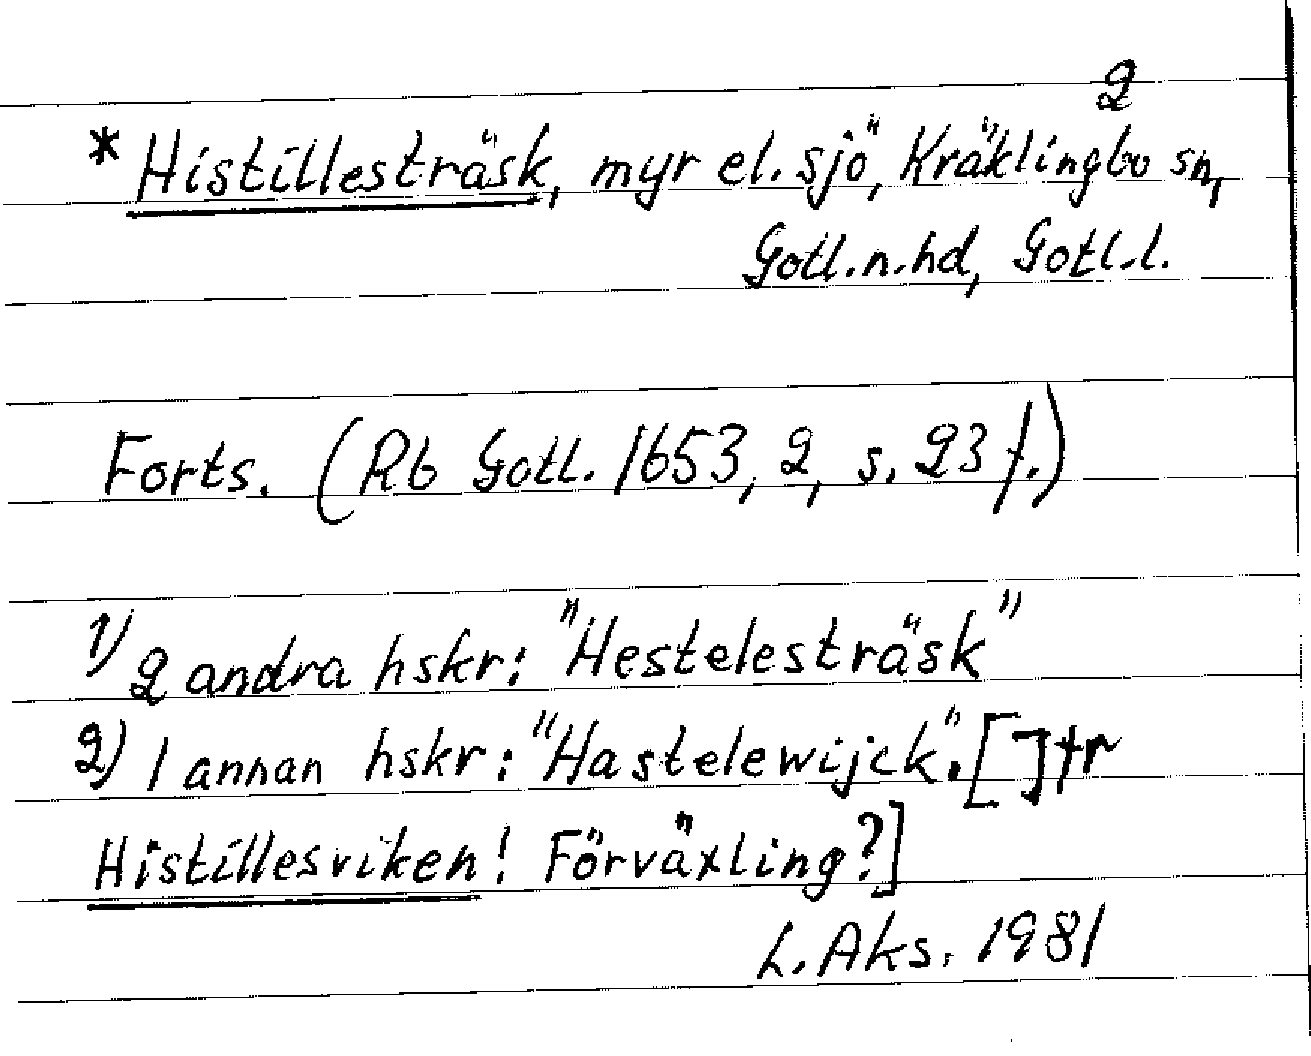 2
* Histillesträsk, myr el. sjö, Kräklingbo sn,
Gotl.n.hd, Gotl.l.
Forts. (Rb Gotl. 1653, 2, s. 23 f.)
1) 2 andra hskr: "Hestelesträsk"
2) 1 annan hskr: "Hastelewijck". [Jfr
Histillesviken! Förväxling?]
L. Aks. 1981